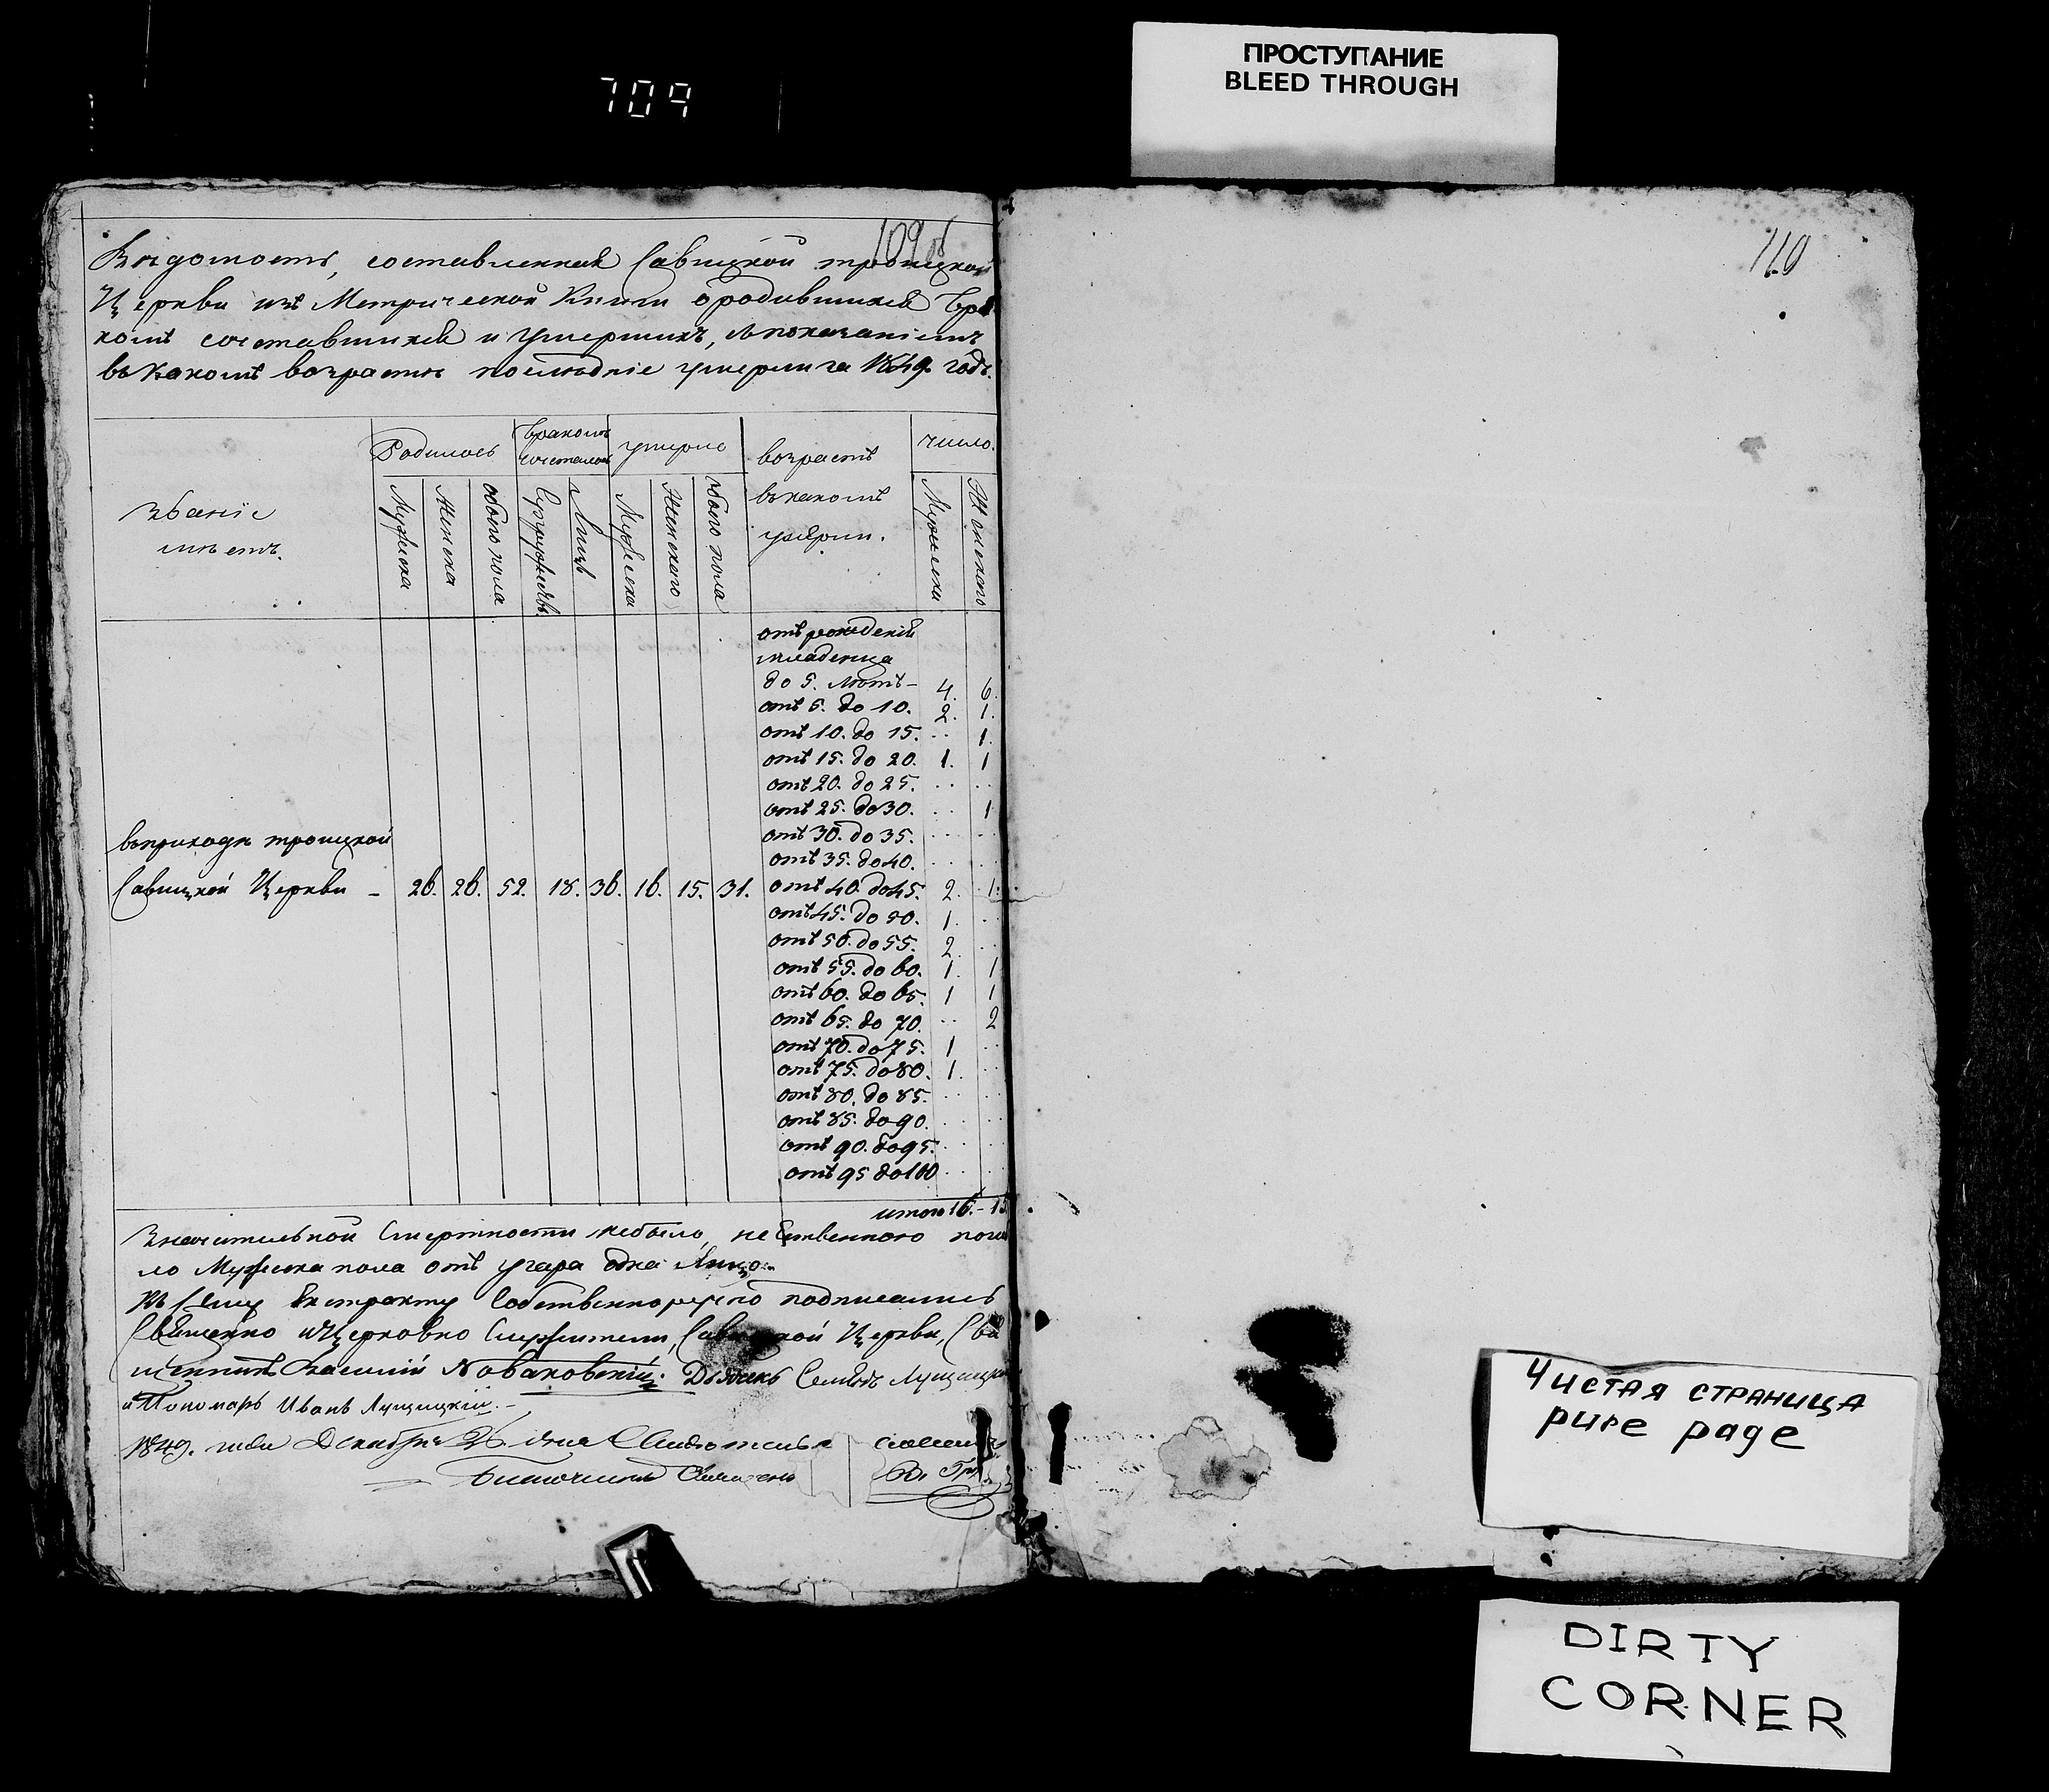 709
ПРОСТУПАНИЕ
BLEED THROUGH
109 об
110
Вѣдомость, составленная Савицкой троицкой
Церкви изъ Метрической Книги о родившихся бра
комъ сочетавшихся и умершихъ, съ показаніемъ
въ какомъ возрастѣ послѣдніе умерли за 1849. годъ.
Званіе мѣстъ.
Родилось
бракомъ сочеталось
умерло
возрастъ въ какомъ умерли.
число.
Мужеска
Женска
обоего пола
Супружествъ
Лицъ
Мужеска
Женскаго
обоего пола
Мужеска
Женскаго
отъ рожденія
младенца
до 5. лѣтъ - 4. 6.
отъ 5. до 10. 2. 1.
отъ 10. до 15. .. 1.
отъ 15. до 20. 1. 1
отъ 20. до 25. .. ..
отъ 25. до 30. .. 1
отъ 30. до 35. .. ..
отъ 35. до 40. .. ..
въ приходѣ троицкой
Савицкой Церкви - 26. 26. 52. 18. 36. 16. 15. 31. отъ 40. до 45. 2. 1.
отъ 45. до 50. 1. ..
отъ 50. до 55. 2. ..
отъ 55. до 60. 1. 1
отъ 60. до 65. 1 1
отъ 65. до 70. .. 2
отъ 70. до 75. 1 ..
отъ 75. до 80. 1. ..
отъ 80. до 85. .. ..
отъ 85. до 90. .. ..
отъ 90. до 95. .. ..
отъ 95 до 100 .. ..
итого 16. - 15
Значительной Смертности небыло, не Ественного поги
ло Мужеска пола отъ угара одна Лицо.
Къ Сему Екстракту Собственноручно подписались
Священно и Церковно Служители, Савицкой Церкви, Свя
щенникъ Василій Новаковскій. Дьячекъ Семіонъ Лущицкі
и Пономарь Иванъ Лущицкій. -
1849. года Декабря 26 дня
Благочинный
Чистая страница
pure page
DIRTY
CORNER